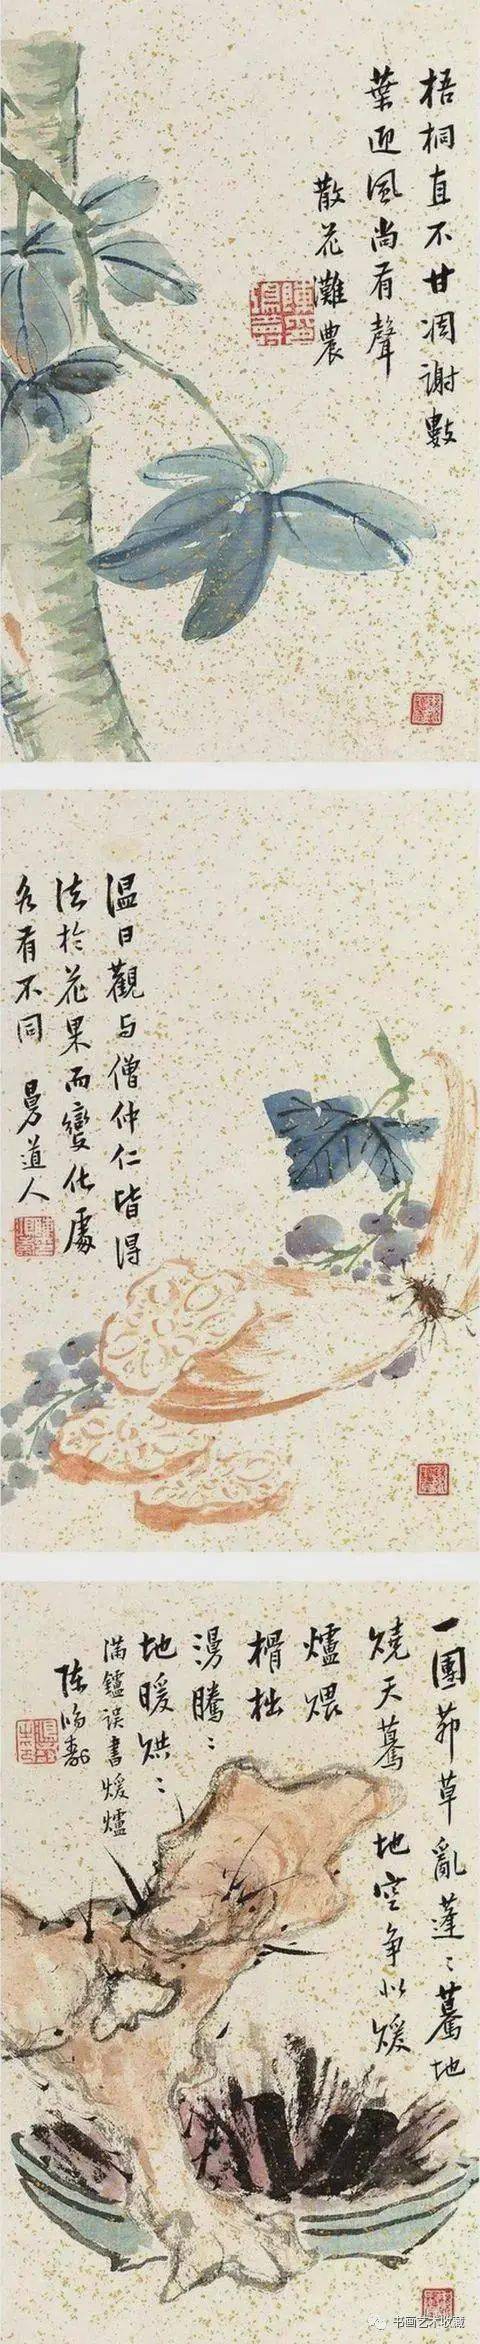 梧桐直不甘凋謝數
葉迎風尚有聲
散花灘農
温日觀与僧仲仁皆得
法於花果而變化處
各有不同 曼道人
一團茆草亂蓬〻驀地
燒天驀地空争似煖
爐煨
榾柮
漫騰〻
地暖烘〻
满鑪误書煖爐
陈鴻壽
书画艺术收藏